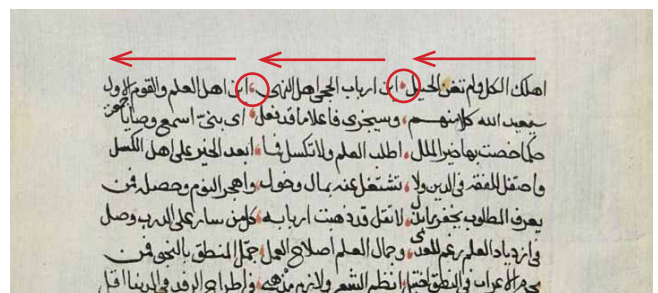 اهلك الكل فلم تغن الحيل ؛ اين ارباب الحجى اهل النهى ؛ اين اهل العلم والقوم الاول
سيعيد الله كلا منهم ؛ وسيجزى فاعلا ما قد فعل ؛ اى بنىّ اسمع وصايا جمعت
حكما خصت بها خير الملل ؛ اطلب العلم ولا تكسل فما ؛ ابعد الخير على اهل الكسل
واحتفل للفقه فى الدين ولا ؛ تشتغل عنه بمال وخول ؛ واهجر النوم وحصله فمن
يعرف المطلوب يحقر ما بذل ؛ لا تقل قد ذهبت اربابه ؛ كل من سار على الدرب وصل
فى ازدياد العلم رغم للعدى ؛ وجمال العلم اصلاح العمل ؛ جمّل المنطق بالنحو فمن
يحرم الاعراب فى النطق اختبل ؛ انظم الشعر ولازم مذهبى ؛ فى اطراح الرفد فى الدنيا اقل